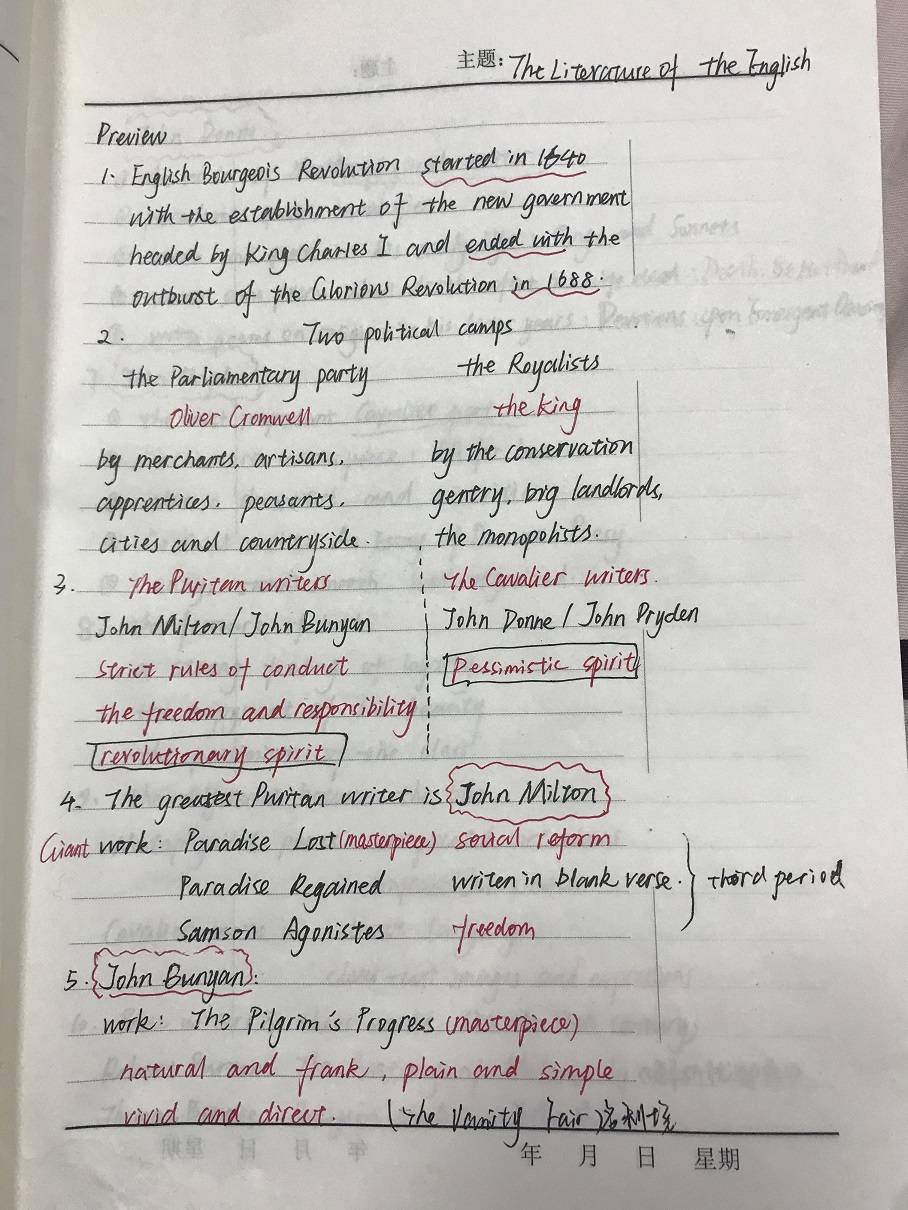 主题: The Literature of the English
Preview
1. English Bourgeois Revolution started in 1640
with the establishment of the new government
headed by King Charles I and ended with the
outburst of the Glorious Revolution in 1688.
2. Two political camps
the Parliamentary party the Royalists
Oliver Cromwell the king
by merchants, artisans, by the conservation
apprentices, peasants, gentry, big landlords,
cities and countryside. the monopolists.
3. The Puritan writers The Cavalier writers.
John Milton/John Bunyan John Donne / John Pryden
strict rules of conduct pessimistic spirit
the freedom and responsibility
revolutionary spirit
4. The greatest Puritan writer is John Milton
Giant work: Paradise Lost (masterpiece) social reform
Paradise Regained writen in blank verse. third period
Samson Agonistes freedom
5. John Bunyan:
work: The Pilgrim's Progress (masterpiece)
natural and frank, plain and simple
vivid and direct. (The Vanity Fair) 名利场
年 月 日 星期